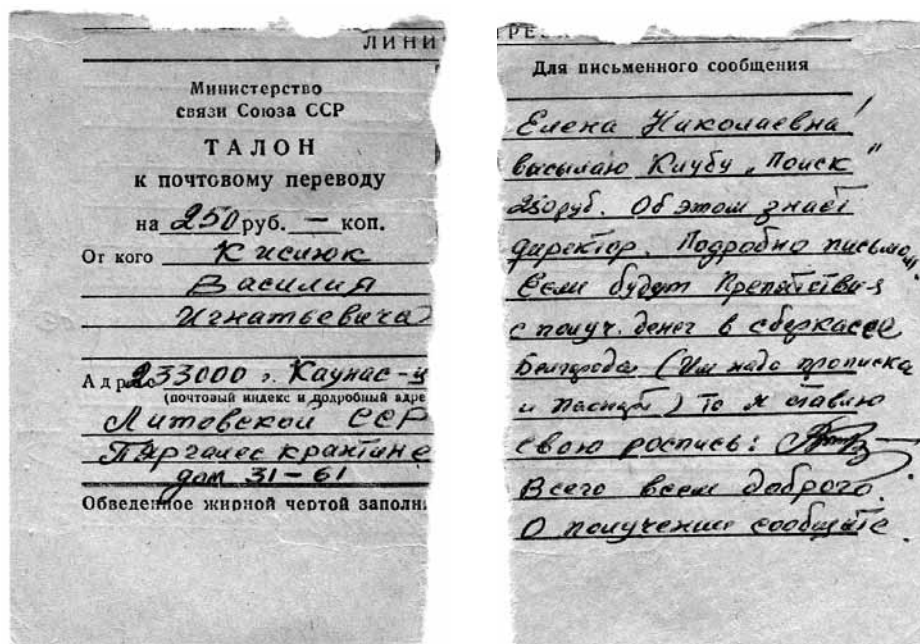 ЛИНИ
Министерство
связи Союза ССР
ТАЛОН
к почтовому переводу
на 250 руб. — коп.
От кого Кисиюк
Василия
Игнатьевича
Адрес 233000 г. Каунас-ц
(почтовый индекс и подробный адре
Литовской ССР
Пяргалес крантине
дом 31-61
Обведенное жирной чертой заполн
РЕЗ
Для письменного сообщения
Елена Николаевна!
высылаю Клубу „Поиск"
250 руб. Об этом знает
директор. Подробно письмом
Если будут Препятствия
с получ. денег в сберкассе
Белгорода (Им надо прописка
и паспорт) то я ставлю
свою роспись:
Всего всем доброго.
О получении сообщите.